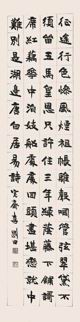 征途行色慘風煙祖帳離聲咽管弦翠黛不
須留五馬皇恩只許住三年綠藤陰下鋪歌
席紅藕華中泊妓船處處回頭盡堪戀就中
難別是湖邊白居易詩